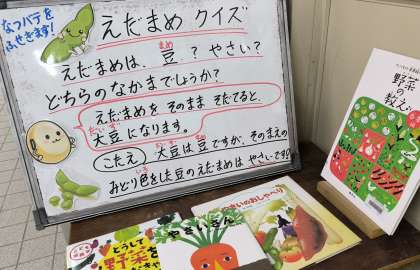 なつバテを
ふせぎます!
えだまめ クイズ
えだまめは、豆?やさい?
まめ
どちらのなかまでしょうか?
えだまめを そのまま そだてると、
大豆になります。
だいず
こたえ 大豆は豆ですが、そのまえの
みどり色をした豆のえだまめは やさいです!
野菜の教え
どうして
野菜を
やさいさん
やさいのおしゃべり